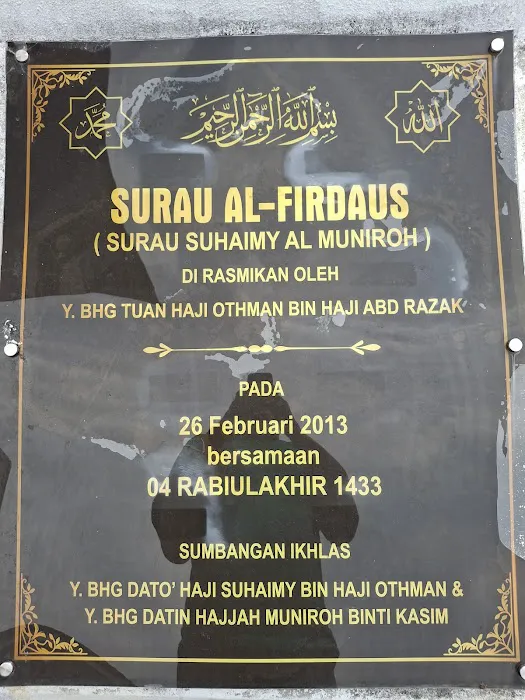 محمد
بسم الله الرحمن الرحيم
الله
SURAU AL-FIRDAUS
( SURAU SUHAIMY AL MUNIROH )
DI RASMIKAN OLEH
Y. BHG TUAN HAJI OTHMAN BIN HAJI ABD RAZAK
PADA
26 Februari 2013
bersamaan
04 RABIULAKHIR 1433
SUMBANGAN IKHLAS
Y. BHG DATO' HAJI SUHAIMY BIN HAJI OTHMAN &
Y. BHG DATIN HAJJAH MUNIROH BINTI KASIM